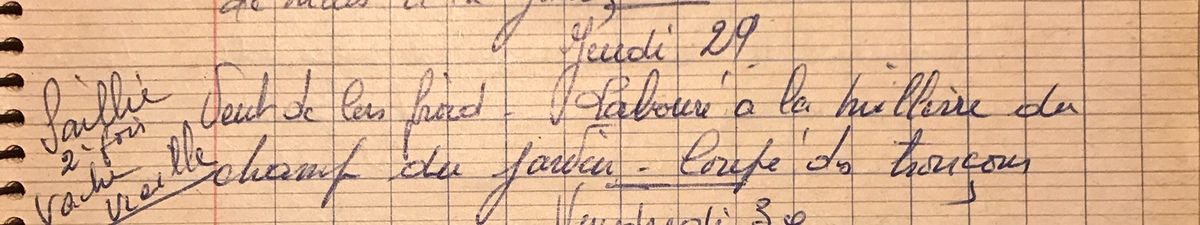 Jeudi 29
Saillie
2e fois
vache
vieille
Vent de bas froid - Labouré à la du
champ du jardin - Coupé des tronçons
Vendredi 30